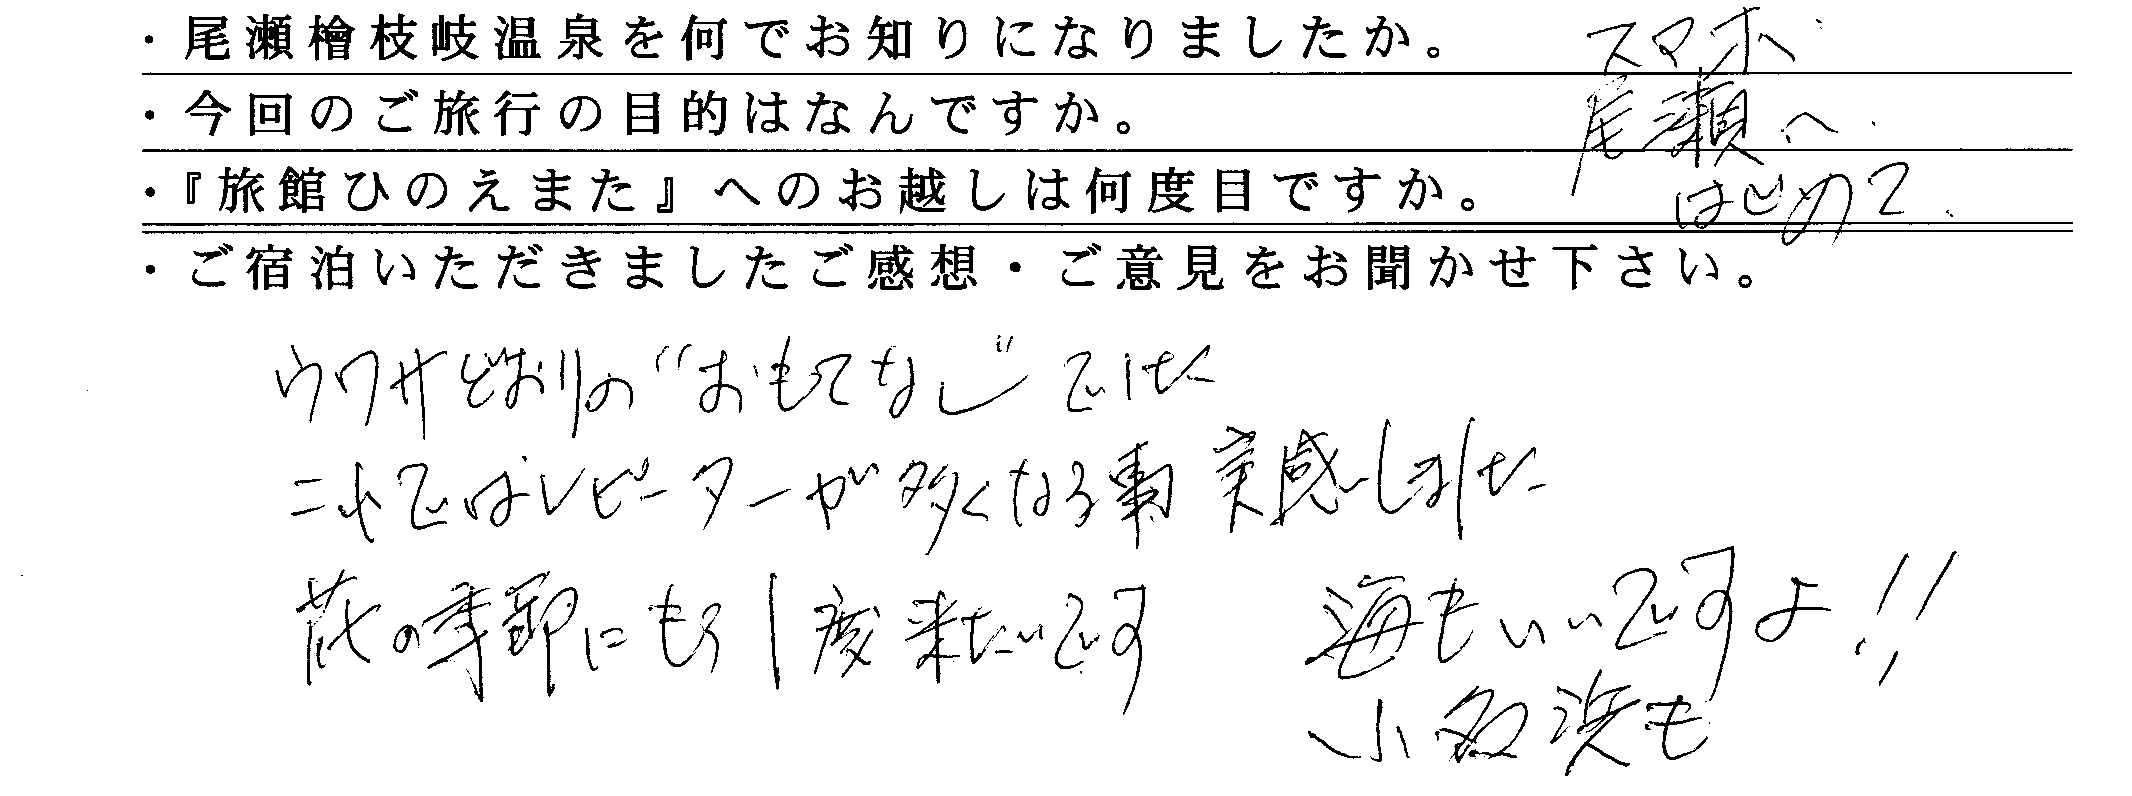 ・尾瀬檜枝岐温泉を何でお知りになりましたか。 スマホ
・今回のご旅行の目的はなんですか。 尾瀬へ
・『旅館ひのえまた』へのお越しは何度目ですか。 はじめて
・ご宿泊いただきましたご感想・ご意見をお聞かせ下さい。
ウワサどおりの“おもてなし”でした
これではレピーターが多くなる事 実感しました
花の季節にもう1度来たいです 海もいいですよ!!
小名浜も